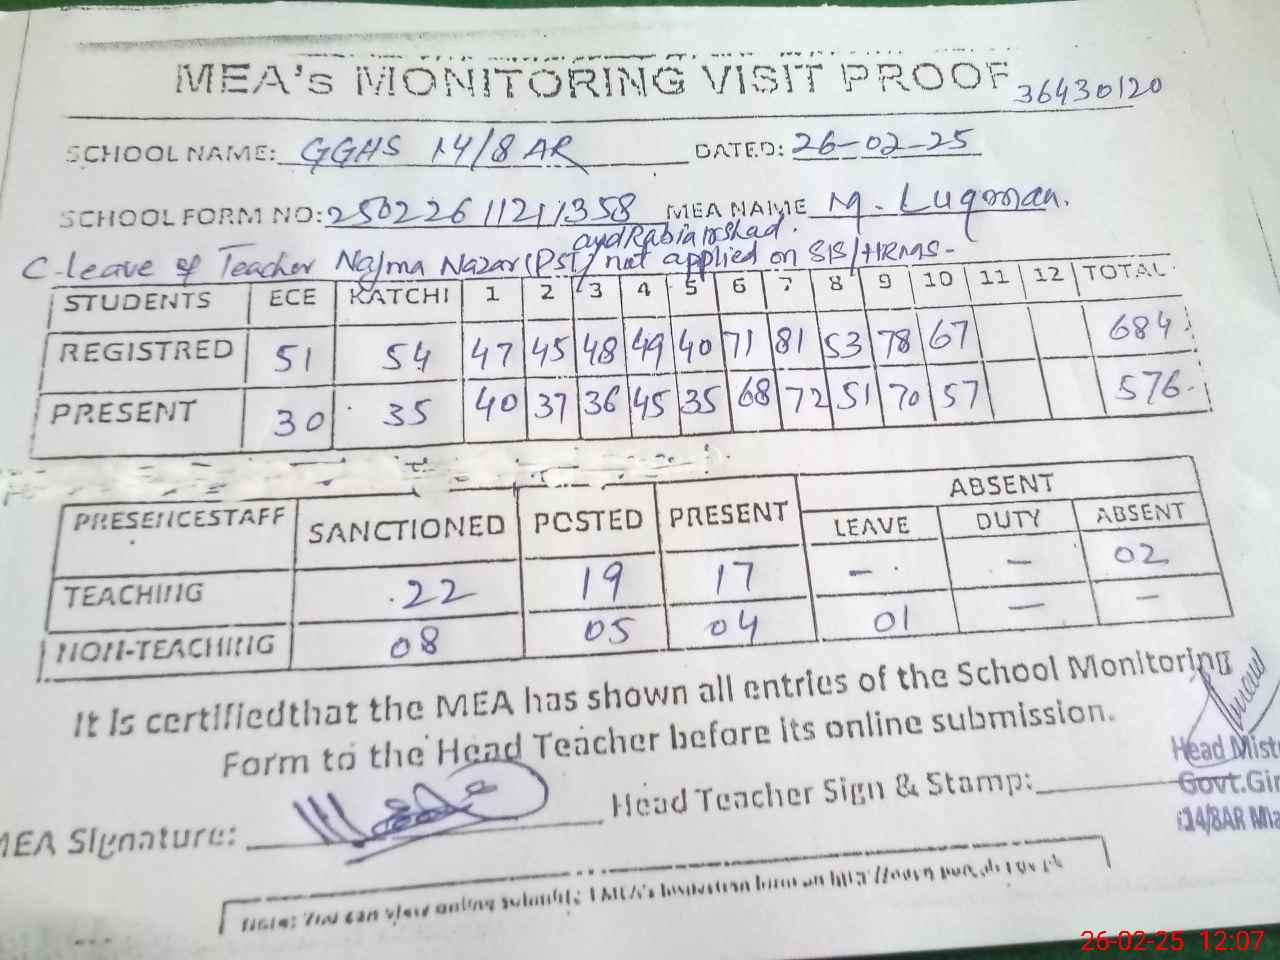 MEA's MONITORING VISIT PROOF 36430120
SCHOOL NAME: GGHS 14/8 AR DATED: 26-02-25
SCHOOL FORM NO: 250226112111358 MEA NAME M. Luqman.
and Rabia Arshad.
C-leave of Teacher Najma Nazar (PST) not applied on SIS/HRMS-
STUDENTS ECE KATCHI 1 2 3 4 5 6 7 8 9 10 11 12 TOTAL
REGISTRED 51 54 47 45 48 49 40 71 81 53 78 67 684
PRESENT 30 35 40 37 36 45 35 68 72 51 70 57 576
ABSENT
PRESENCESTAFF SANCTIONED POSTED PRESENT LEAVE DUTY ABSENT
TEACHING 22 19 17 - - 02
NON-TEACHING 08 05 04 01 - -
It is certifiedthat the MEA has shown all entries of the School Monitoring
Form to the Head Teacher before its online submission.
MEA Signature: Head Teacher Sign & Stamp:
Head Mist
Govt.Gir
14/8AR Mia
Note: You can view online
26-02-25 12:07